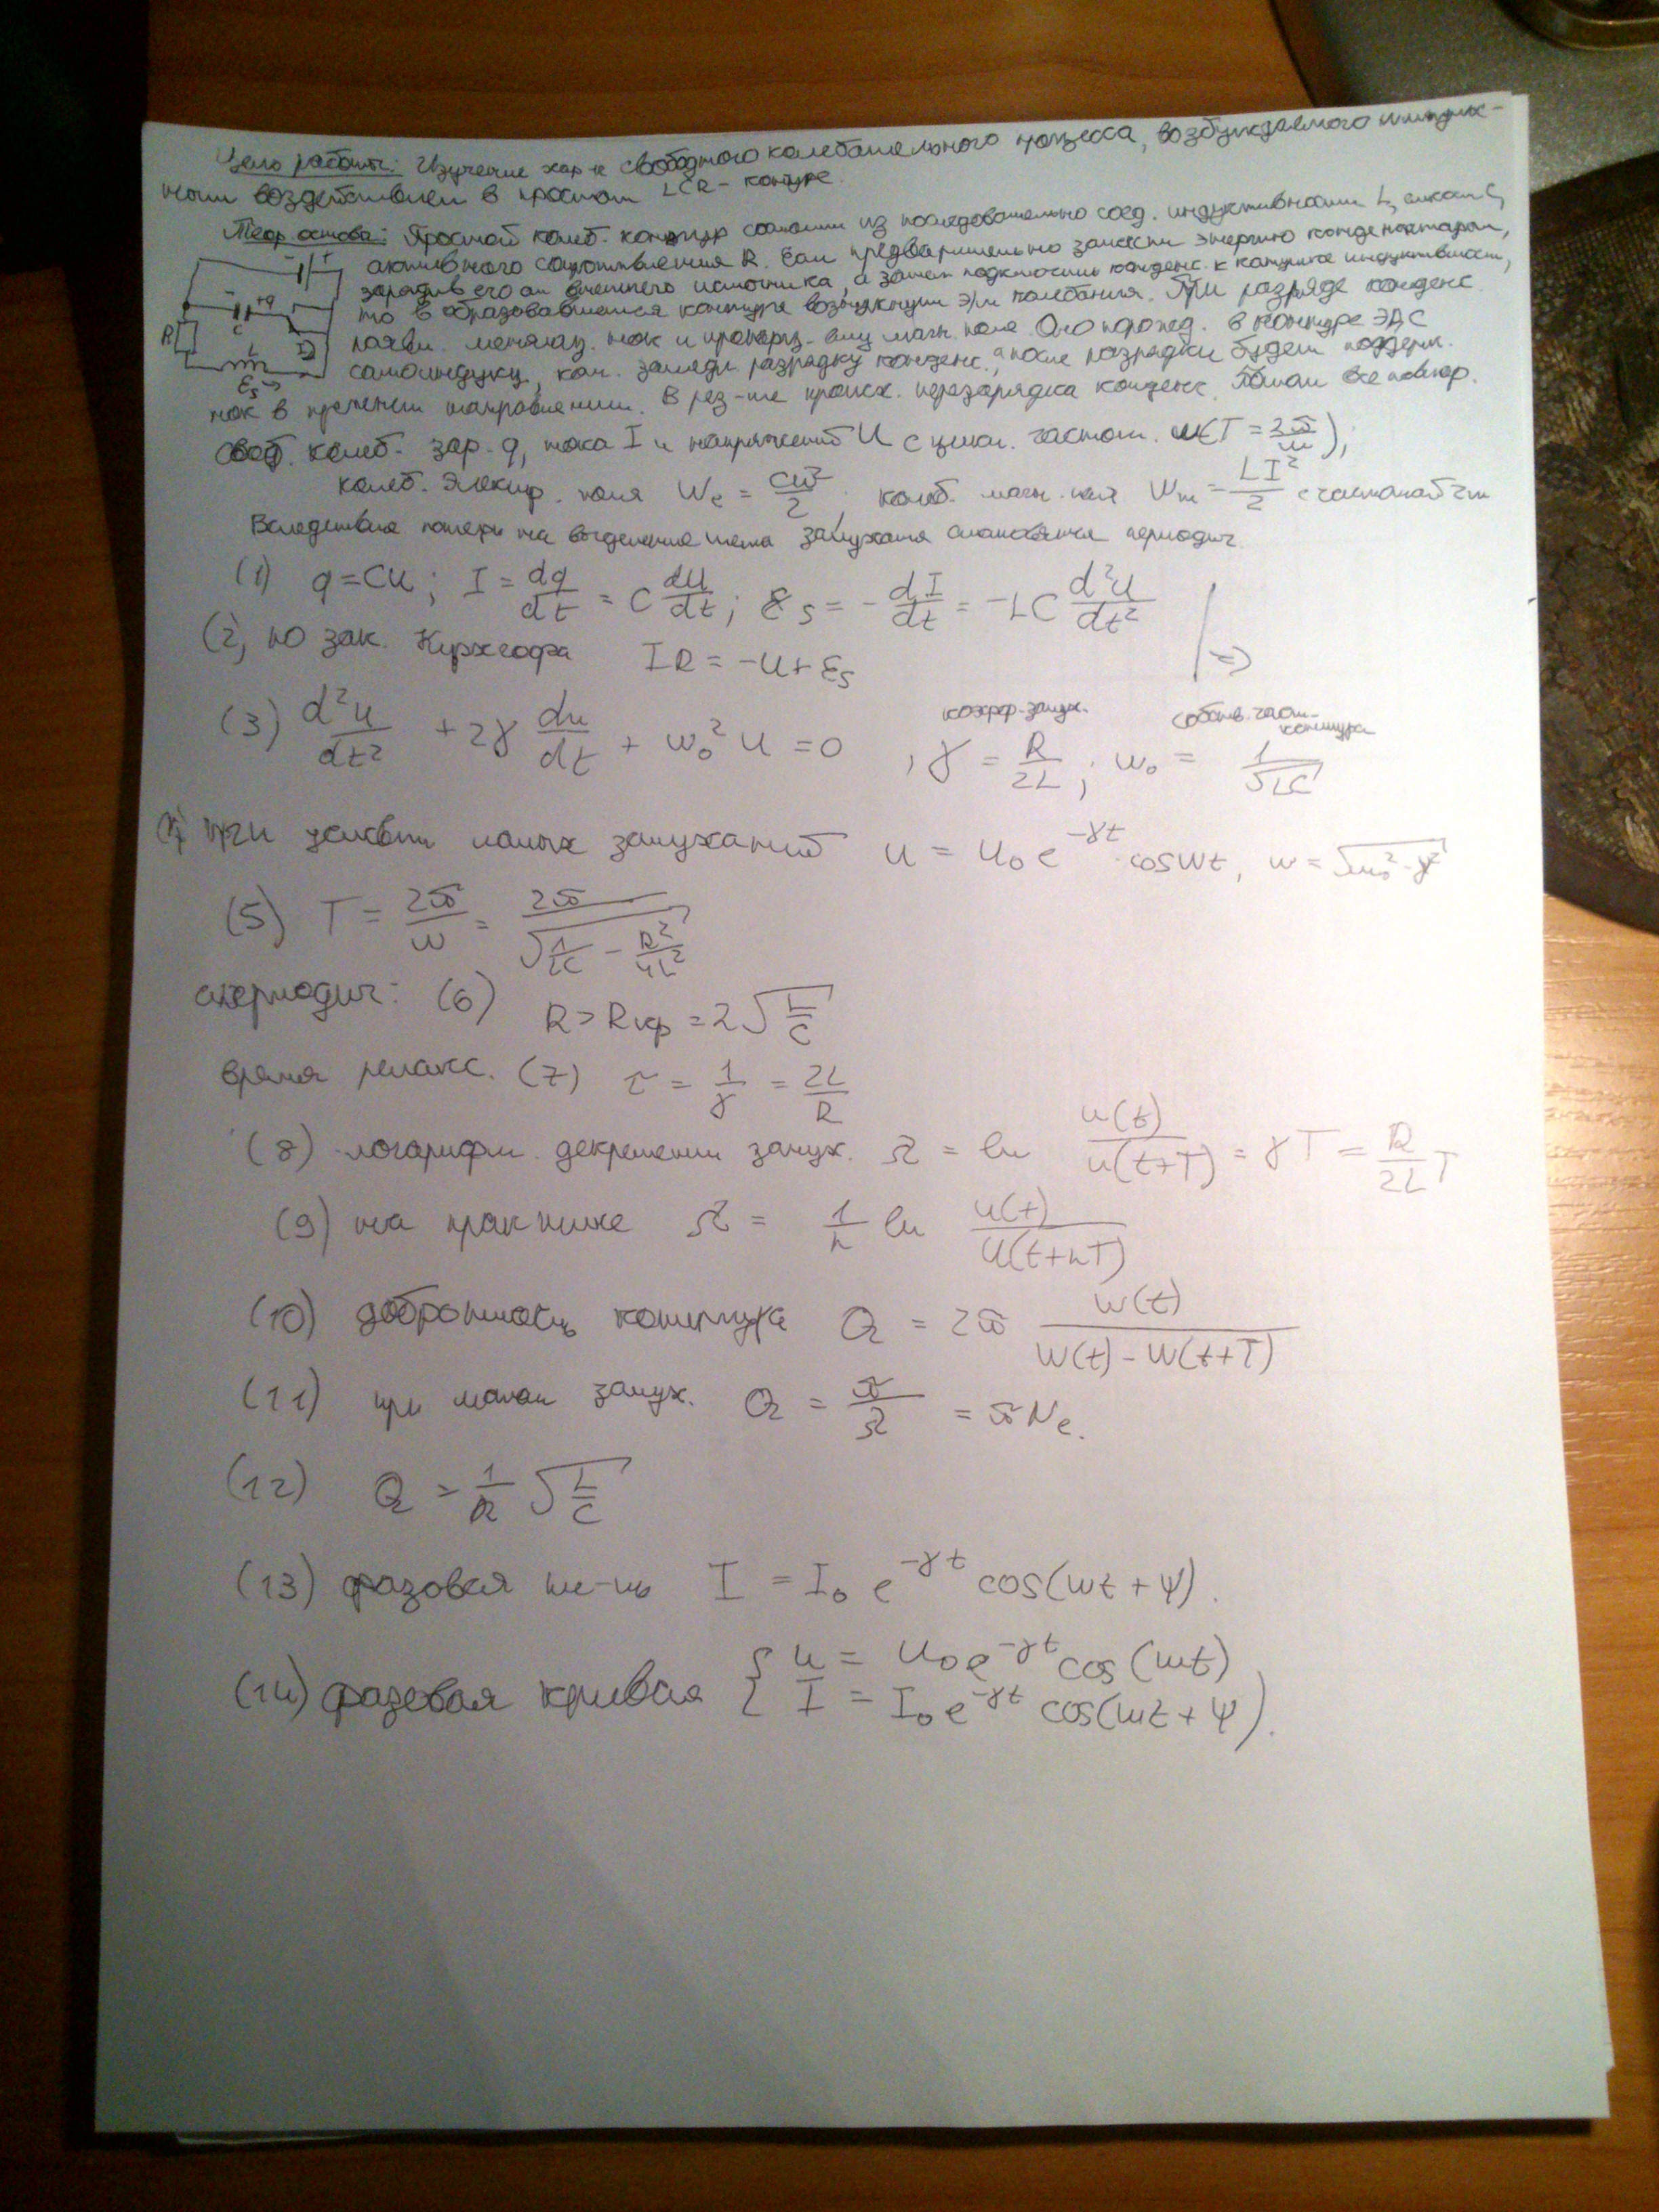 Цель работы: Изучение хар-к свободного колебательного процесса, возбуждаемого импульс-
ным воздействием в простом LCR-контуре.
Теор. основа: Простой колеб. контур состоит из последовательно соед. индуктивности L, емкости C,
активного сопротивления R. Если предварительно запасти энергию конденсатором,
зарядив его от внешнего источника, а затем подключить конденс. к катушке индуктивности,
то в образовавшемся контуре возникнут э/м колебания. При разряде конденс.
появл. меняющ. ток и пропорц. ему магн. поле. Оно порожд. в контуре ЭДС
самоиндукц., кот. замедл. разрядку конденс., а после разрядки будет поддерж.
ток в прежнем направлении. В рез-те происх. перезарядка конденс. Потом все повтор.
+q
C
R
L
εs →
Своб. колеб. зар. q, тока I и напряжений U с цикл. частот. ω(T = 2π/ω);
колеб. электр. поля We = CU²/2, колеб. магн. поля Wm = LI²/2 с частотой 2ω
Вследствие потерь на выделение тепла затухания становятся периодич.
(1) q = CU; I = dq/dt = C dU/dt; εs = - dI/dt = -LC d²U/dt²
(2) по зак. Кирхгофа IR = -U + εs | =>
(3) d²u/dt² + 2γ du/dt + ω₀² u = 0, γ = R/2L; ω₀ = 1/√LC
коэфф. затух.
собств. част. контура
(4) при условии малых затуханий u = u₀ e^-γt · cos ωt, ω = √ω₀² - γ²
(5) T = 2π/ω = 2π/√(1/LC - R²/4L²)
апериодич: (6) R > Rкр = 2√(L/C)
время релакс. (7) τ = 1/γ = 2L/R
(8) логарифм. декремент затух. Ω = ln u(t)/u(t+T) = γT = R/2L T
(9) на практике Ω = 1/n ln u(t)/u(t+nT)
(10) добротность контура Q = 2π W(t)/W(t) - W(t+T)
(11) при малом затух. Q = π/Ω = πNe.
(12) Q = 1/R √(L/C)
(13) фазовая пл-ть I = I₀ e^-γt cos(ωt + ψ).
(14) фазовая кривая { u = u₀e^-γt cos(ωt)
I = I₀e^-γt cos(ωt + ψ).